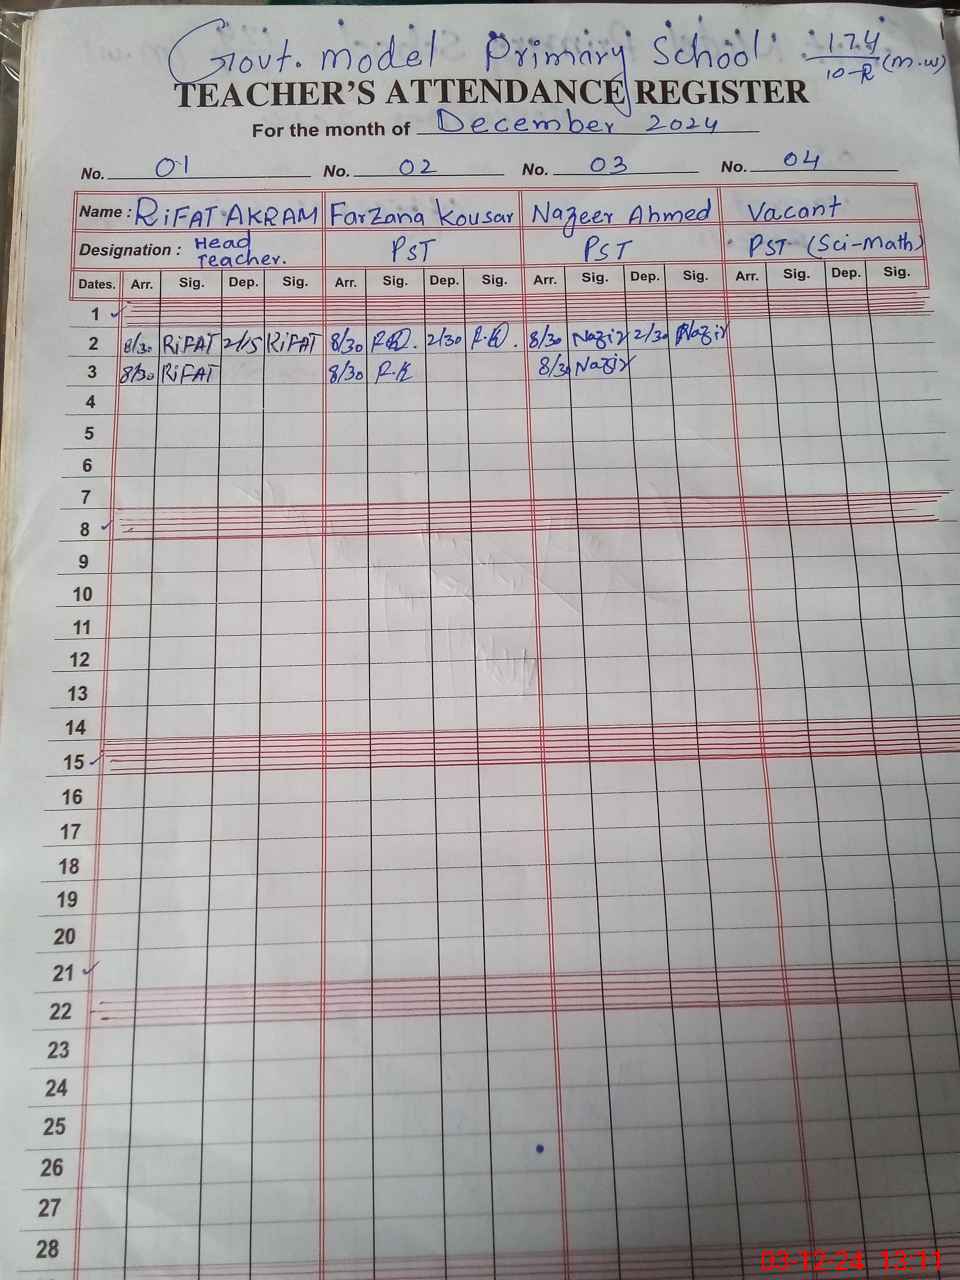 Govt. Model Primary School 174/10-R (M.W)
TEACHER'S ATTENDANCE REGISTER
For the month of December 2024
No. 01 No. 02 No. 03 No. 04
Name : RiFAT AKRAM Farzana Kousar Nazeer Ahmed Vacant
Designation : Head Teacher. PST PST PST (Sci-Math)
Dates. Arr. Sig. Dep. Sig. Arr. Sig. Dep. Sig. Arr. Sig. Dep. Sig. Arr. Sig. Dep. Sig.
1
2 8/30 RiFAT 2/15 RiFAT 8/30 2/30 8/30 Nazir 2/30 Nazir
3 8/30 RiFAT 8/30 F.K 8/30 Nazir
4
5
6
7
8
9
10
11
12
13
14
15
16
17
18
19
20
21
22
23
24
25
26
27
28
03-12-24 13:11